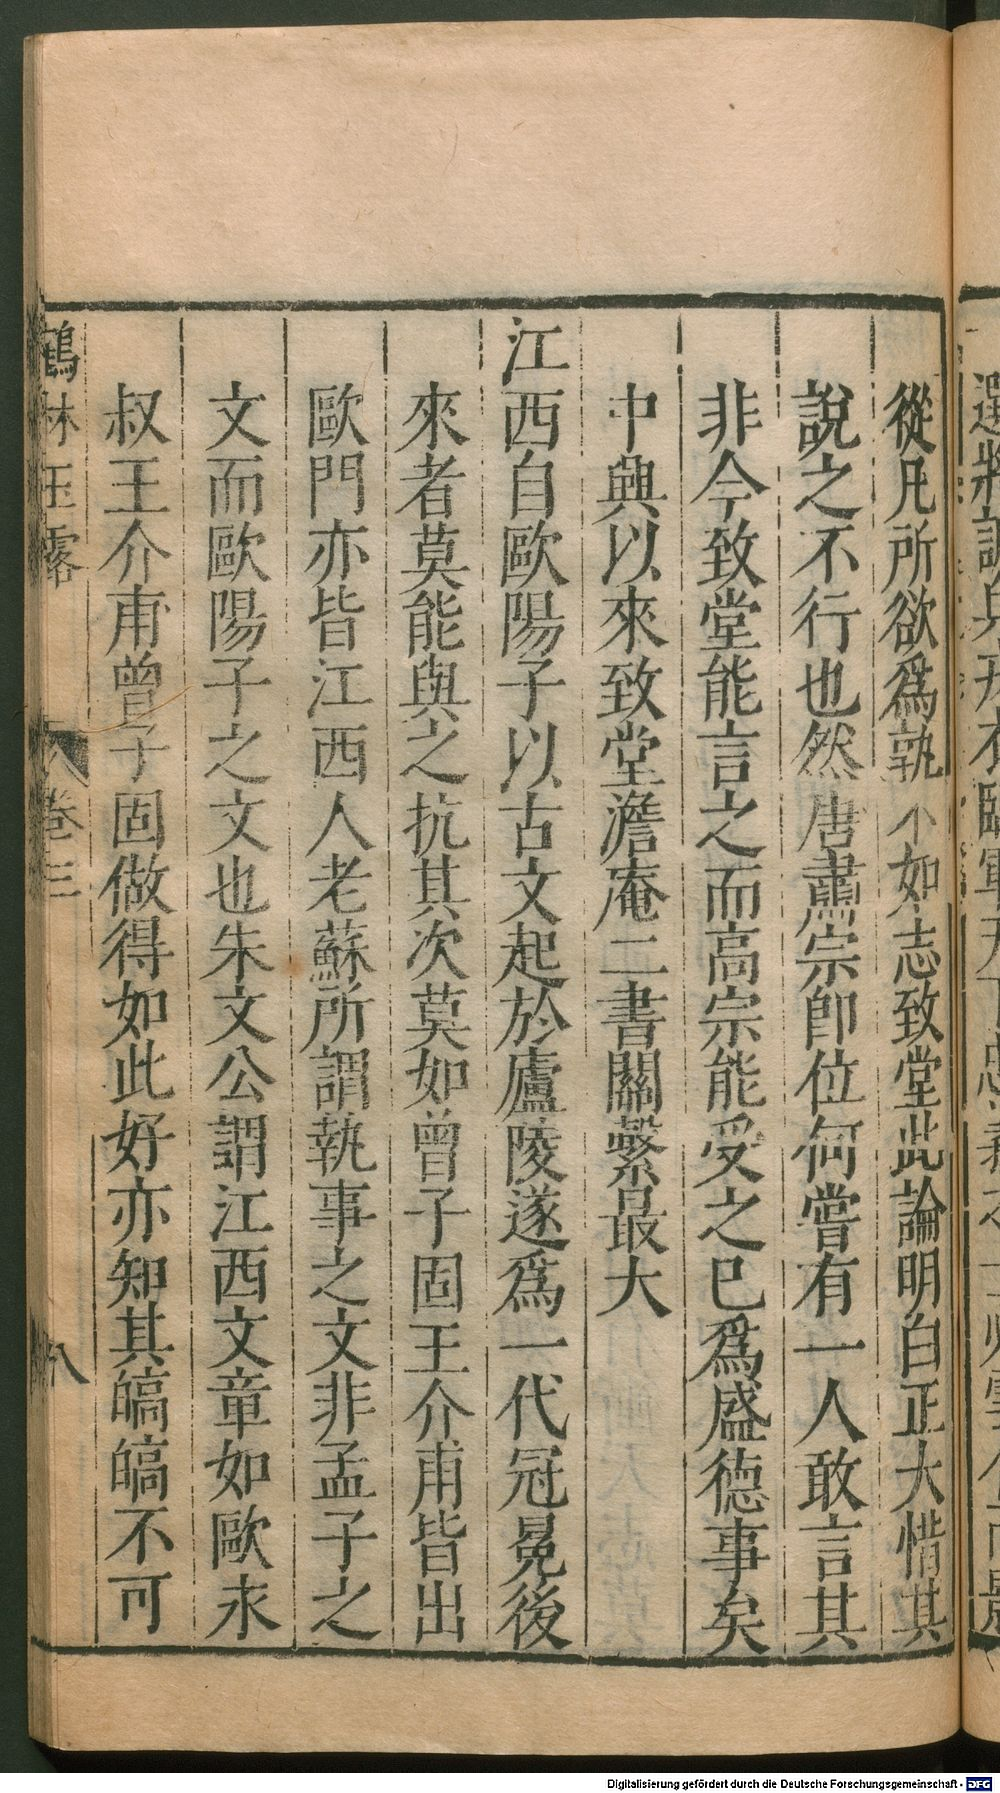 從凡所欲爲孰不如志致堂此論明白正大惜其
說之不行也然唐肅宗卽位何嘗有一人敢言其
非今致堂能言之而高宗能受之已爲盛德事矣
中興以來致堂澹庵二書關繫最大
江西自歐陽子以古文起於廬陵遂爲一代冠冕後
來者莫能與之抗其次莫如曾子固王介甫皆出
歐門亦皆江西人老蘇所謂執事之文非孟子之
文而歐陽子之文也朱文公謂江西文章如歐永
叔王介甫曾子固做得如此好亦知其皜皜不可
鶴林玉露
卷三
八
Digitalisierung gefördert durch die Deutsche Forschungsgemeinschaft - DFG